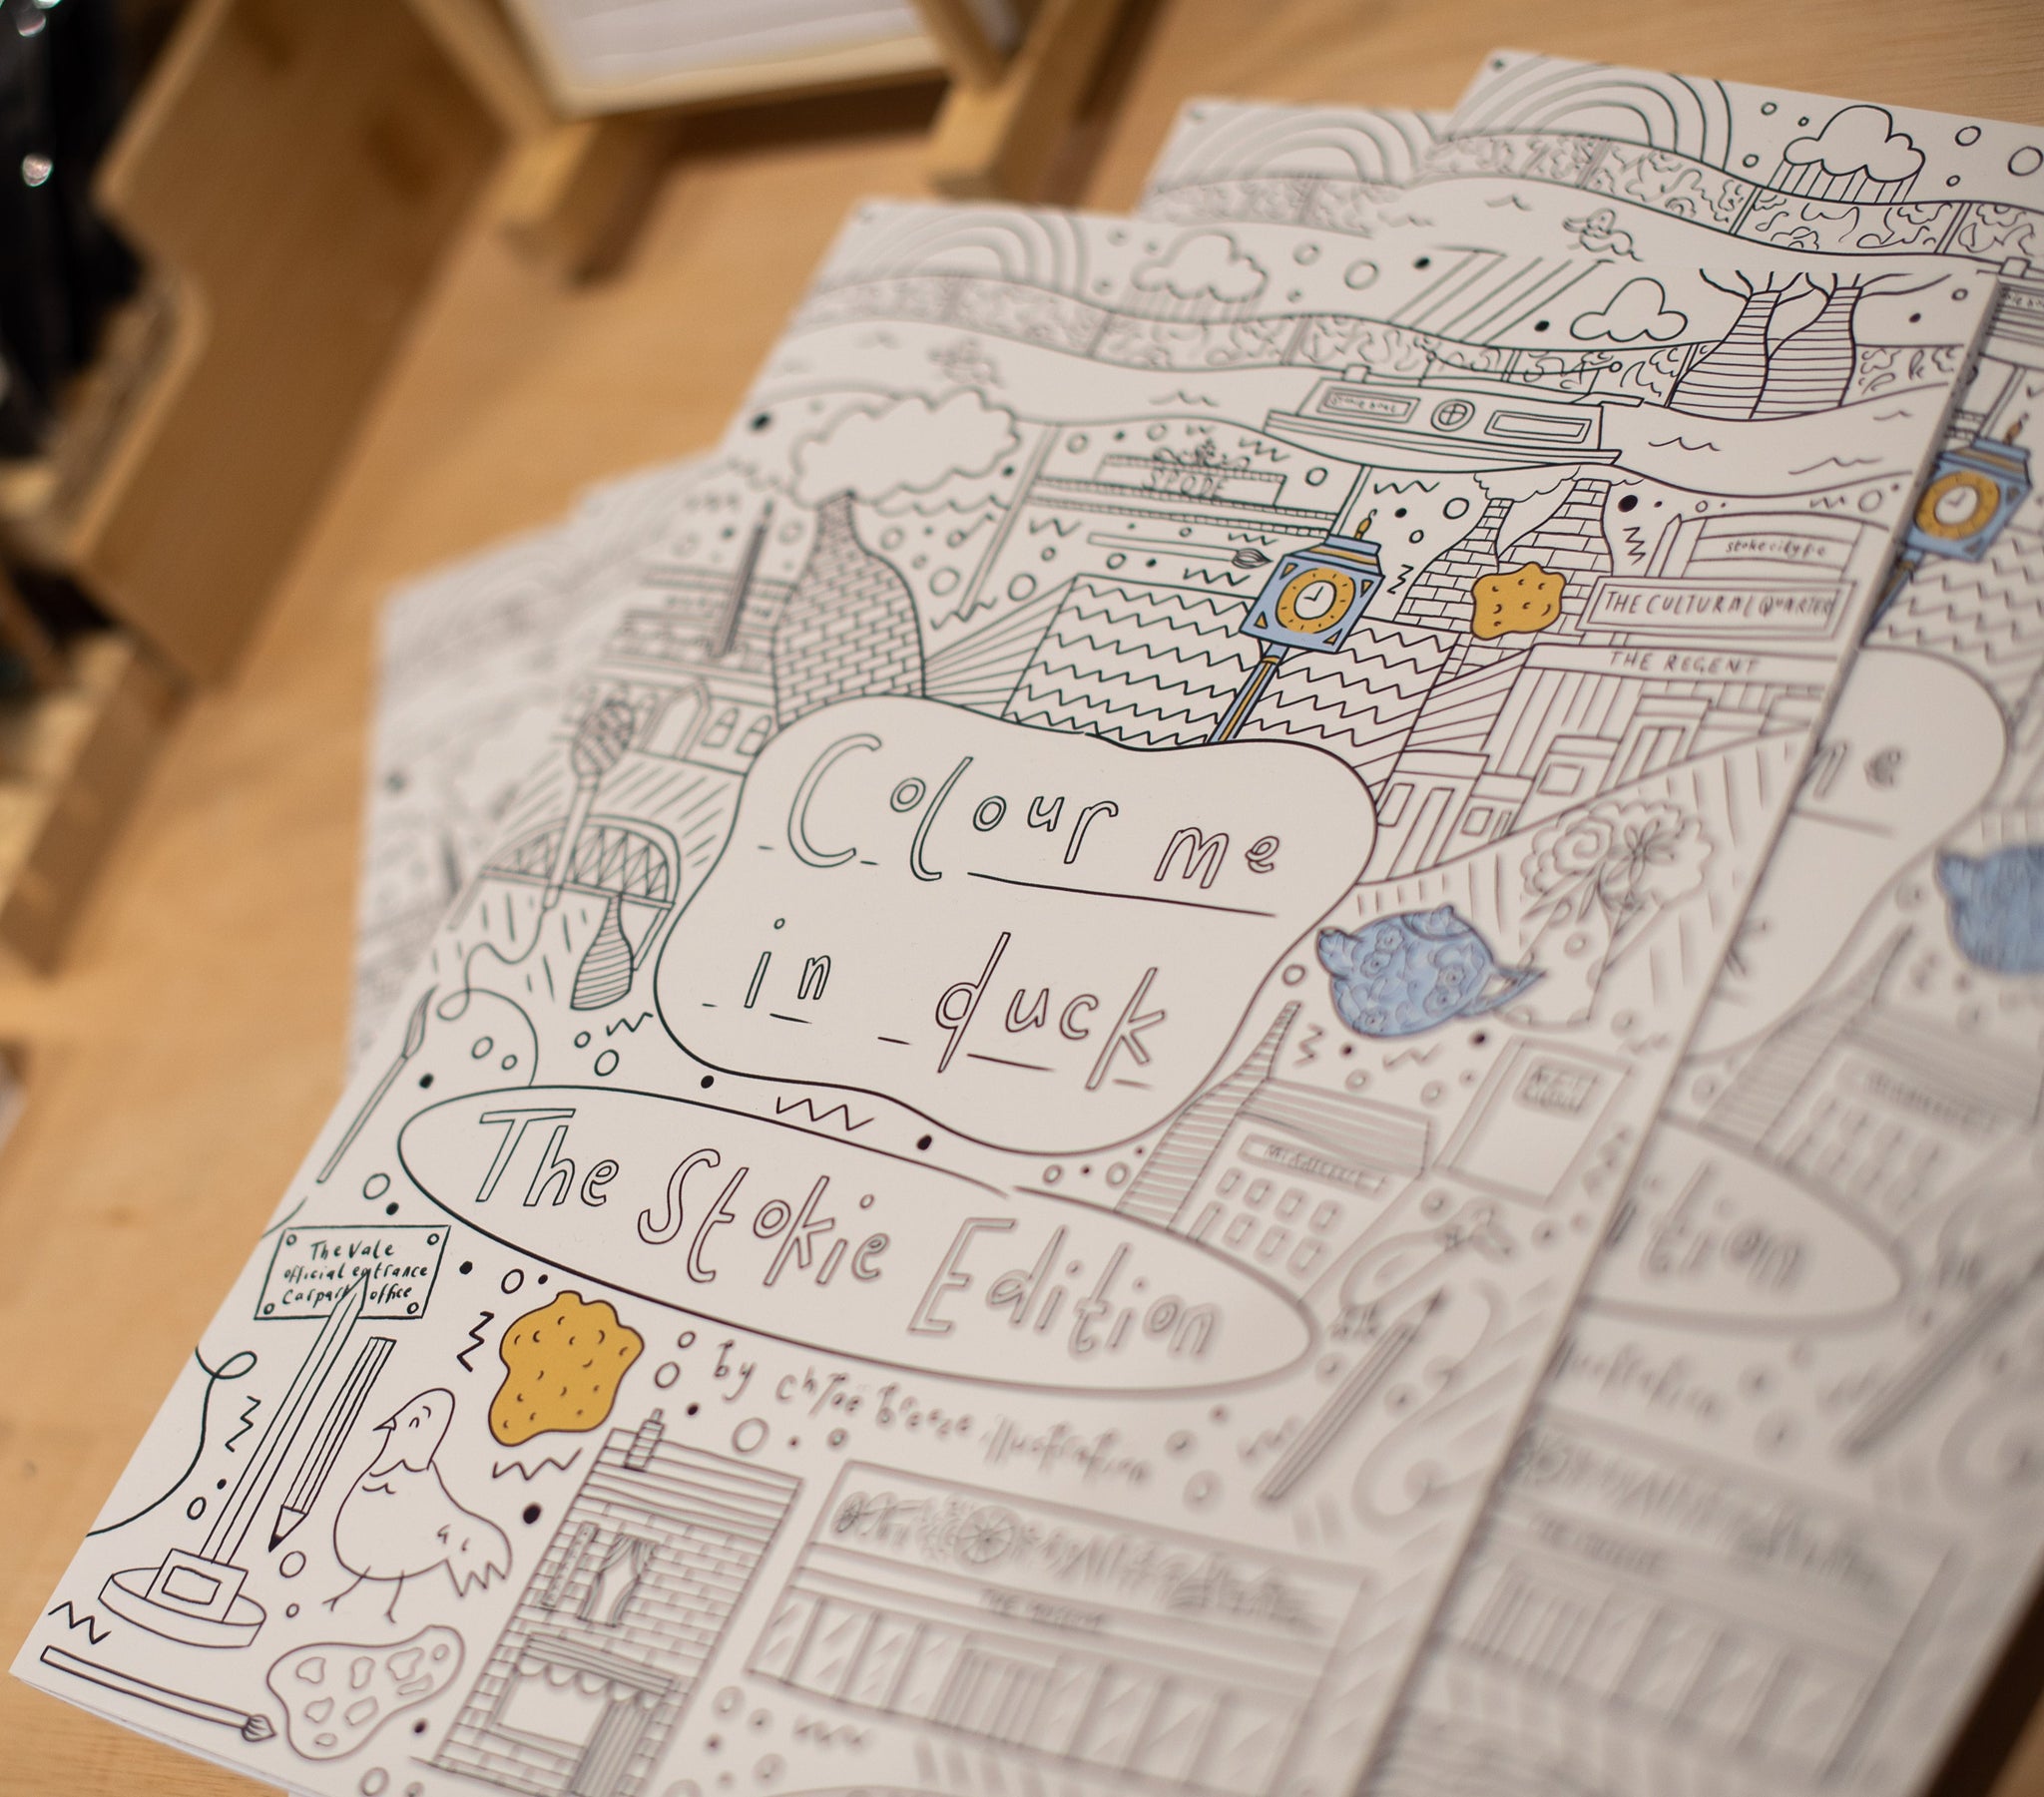 SPODE
stokecityfc
THE CULTURAL QUARTER
THE REGENT
Colour me
in duck
The Stokie Edition
The Vale
official entrance
Carpark office
by chloe breeze illustration
me